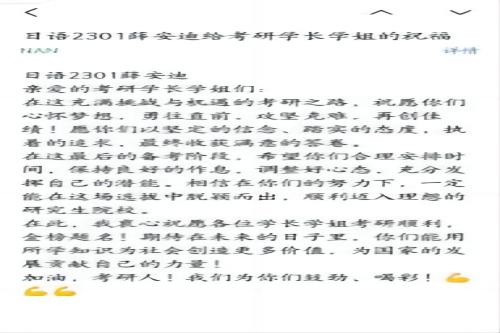 日语2301薛安迪给考研学长学姐的祝福
NAN 详情
日语2301薛安迪
亲爱的考研学长学姐们：
在这充满挑战与机遇的考研之路，祝愿你们
心怀梦想，勇往直前，攻坚克难，再创佳
绩！愿你们以坚定的信念、踏实的态度，执
着的追求，最终收获满意的答卷。
在这最后的备考阶段，希望你们合理安排时
间，保持良好的作息，调整好心态，充分发
挥自己的潜能。相信在你们的努力下，一定
能在这场选拔中脱颖而出，顺利迈入理想的
研究生院校。
在此，我衷心祝愿各位学长学姐考研顺利，
金榜题名！期待在未来的日子里，你们能用
所学知识为社会创造更多价值，为国家的发
展贡献自己的力量！
加油，考研人！我们为你们鼓劲、喝彩！💪
💪💪